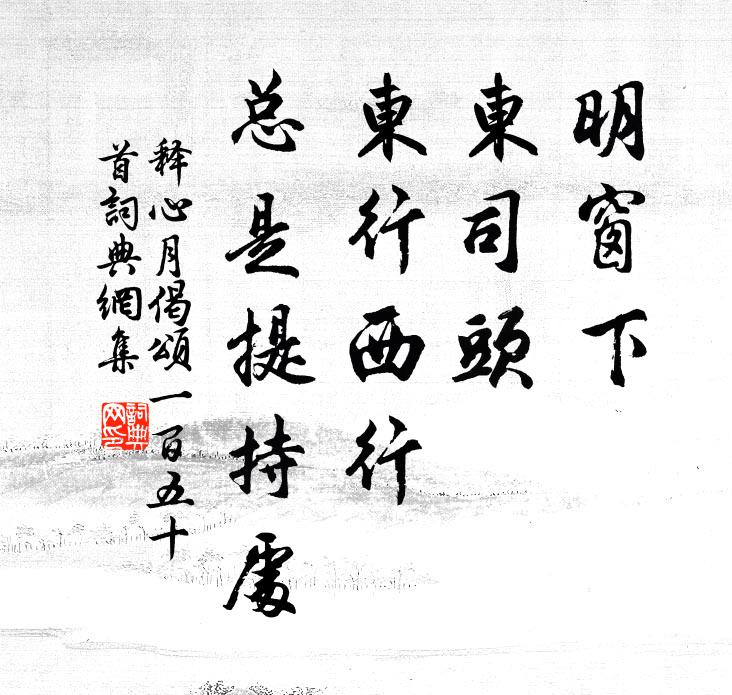 明窗下
東司頭
東行西行
总是提持處
释心月偈頌一百五十
首詞典網集
詞典
网印